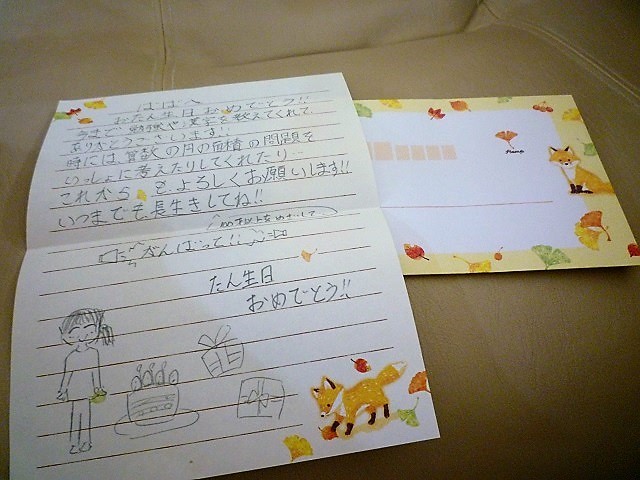 ばばへ
おたん生日おめでとう!!
今まで勉強や漢字を教えてくれて
ありがとうございます!!
時には算数の円の面積の問題を
いっしょに考えたりしてくれたり…
これからもよろしくお願いします!!
いつまでも長生きしてね!!
がんばって!!
たん生日
おめでとう!!